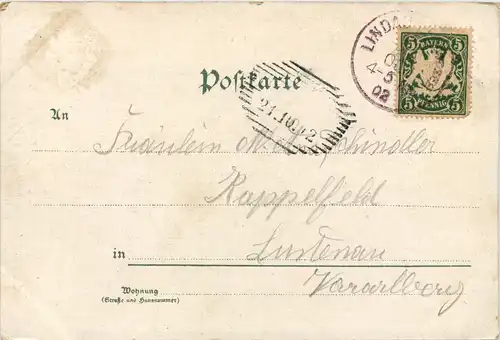 LINDA
4-5
02
5 BAYERN 5
5 PFENNIG 5
Postkarte
21.10.02
An
Fräulein M. Schindler
Rappelfeld
in Lustenau
Vorarlberg
Wohnung
(Straße und Hausnummer)